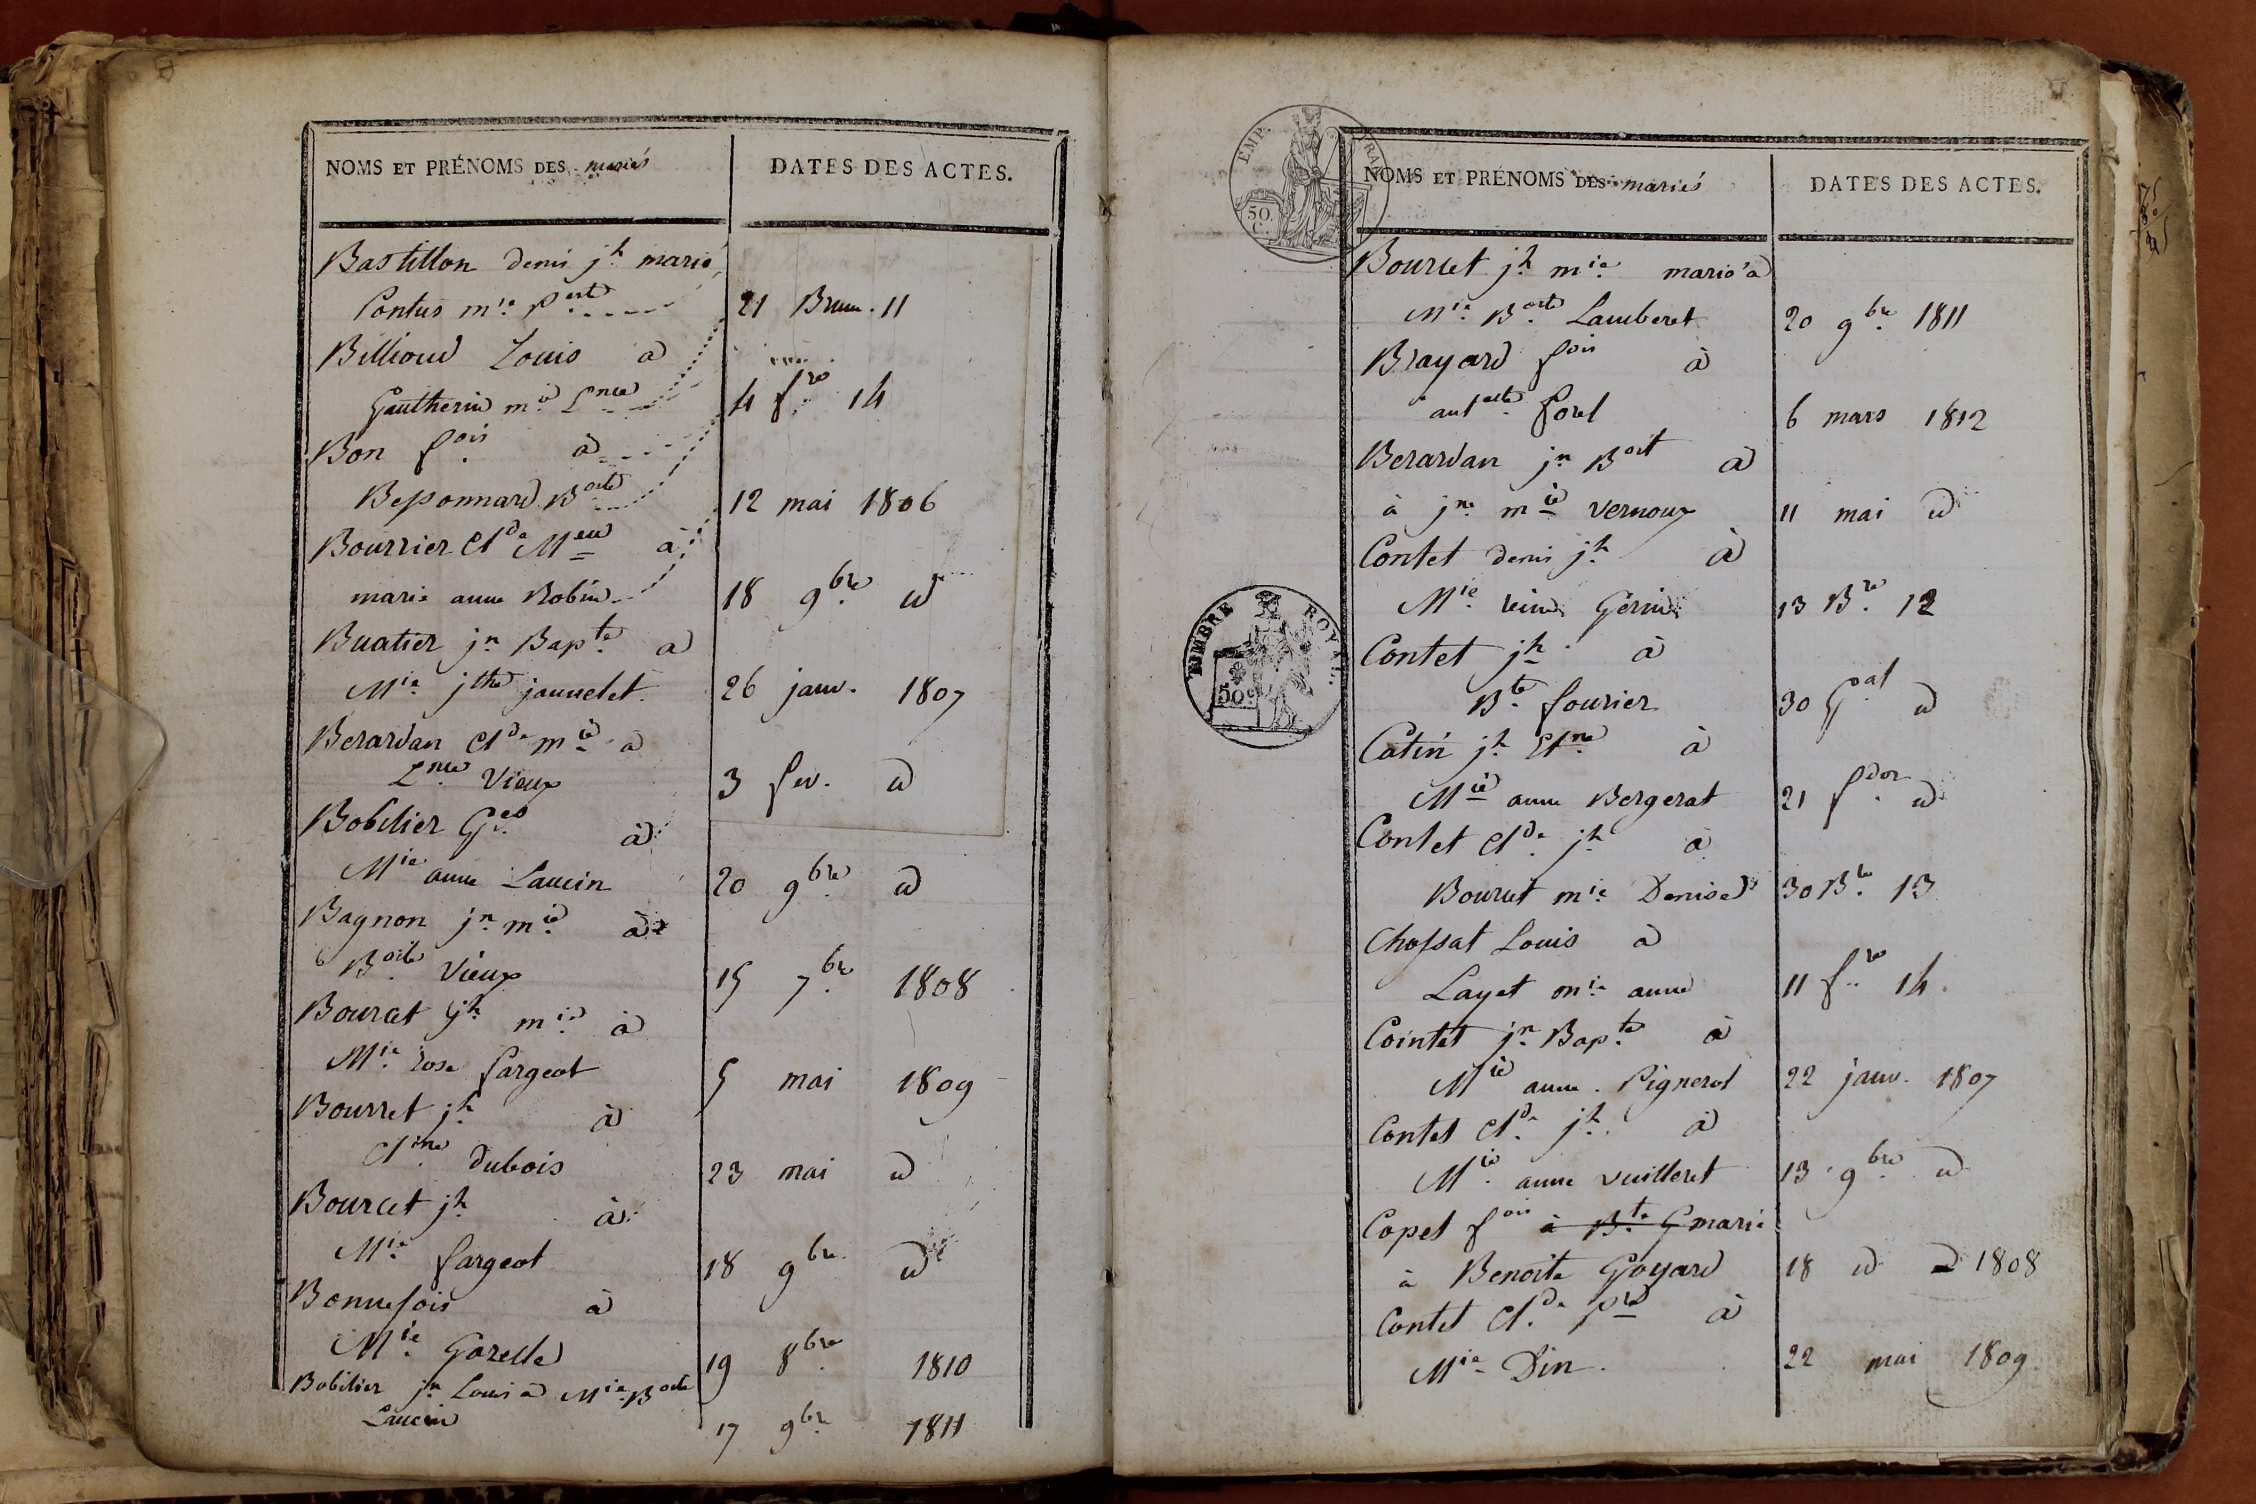 NOMS ET PRÉNOMS DES mariés
DATES DES ACTES.
Bastillon denis jh marié
Contus mie
21 Brum. 11
Billioud Louis a
Gautherin mie Lnce
4 fre 14
Bon fois à
Besponnard Boite
12 mai 1806
Bourrier Clde Meu à
marie anne Robin
18 9bre id
Buatier jn Bapte a
Mie jthe jannelet
26 janv. 1807
Berardan Clde mie a
Lnce Vieux
3 fev. id
Bobilier Ges à
Mie anne Lancin
20 9bre id
Bagnon jn mie à
Boite Vieux
15 7bre 1808
Bourcet jh mie à
Mie rose fargeot
5 mai 1809
Bourret jh à
Cline dubois
23 mai id
Bourcet jh à
Mie fargeot
18 9bre id
Bonnefois à
Mie Gorelle
19 8bre 1810
Bobilier jn Louis a Mie Boite
Lancin
17 9bre 1811
EMP. FRA
50. C.
NOMS ET PRÉNOMS DES mariés
DATES DES ACTES.
Bourcet jh mie marié à
Mie Boite Lamberet
20 9bre 1811
Brayard fois à
antette forel
6 mars 1812
Berardan jn Boit a
à jne mie Vernoux
11 mai id
TIMBRE ROYAL
50c
Contet denis jh à
Mie reine Gerin
13 Bre 12
Contet jh à
Bte fourier
30 Gal id
Catin jh Etne à
Mie anne Bergerat
21 fdor id
Contet Clde jh à
Bourcet mie Denise
30 Bre 13
Chossat Louis à
Layet mie anne
11 fre 14
Cointet jn Bapte à
Mie anne Pignerol
22 janv. 1807
Contet Clde jh à
Mie anne vuilleret
13 9bre id
Copel fois à Bte G marié
à Benoite Goyard
18 id 1808
Contet Clde pre à
Mie Din
22 mai 1809